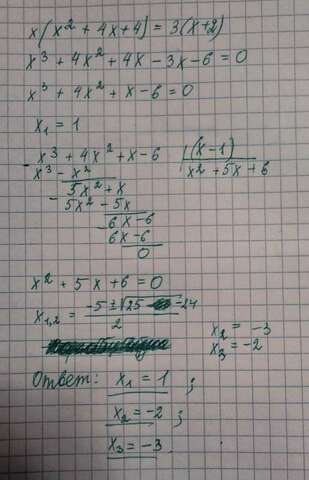 x(x² + 4x + 4) = 3(x+2)
x³ + 4x² + 4x - 3x - 6 = 0
x³ + 4x² + x - 6 = 0
x₁ = 1
- x³ + 4x² + x - 6 | (x - 1)
x³ - x² x² + 5x + 6
- 5x² + x
5x² - 5x
- 6x - 6
6x - 6
0
x² + 5x + 6 = 0
x₁,₂ = (-5 ± √(25 - 24)) / 2
x₂ = -3
x₃ = -2
Ответ: x₁ = 1 ;
x₂ = -2 ;
x₃ = -3.